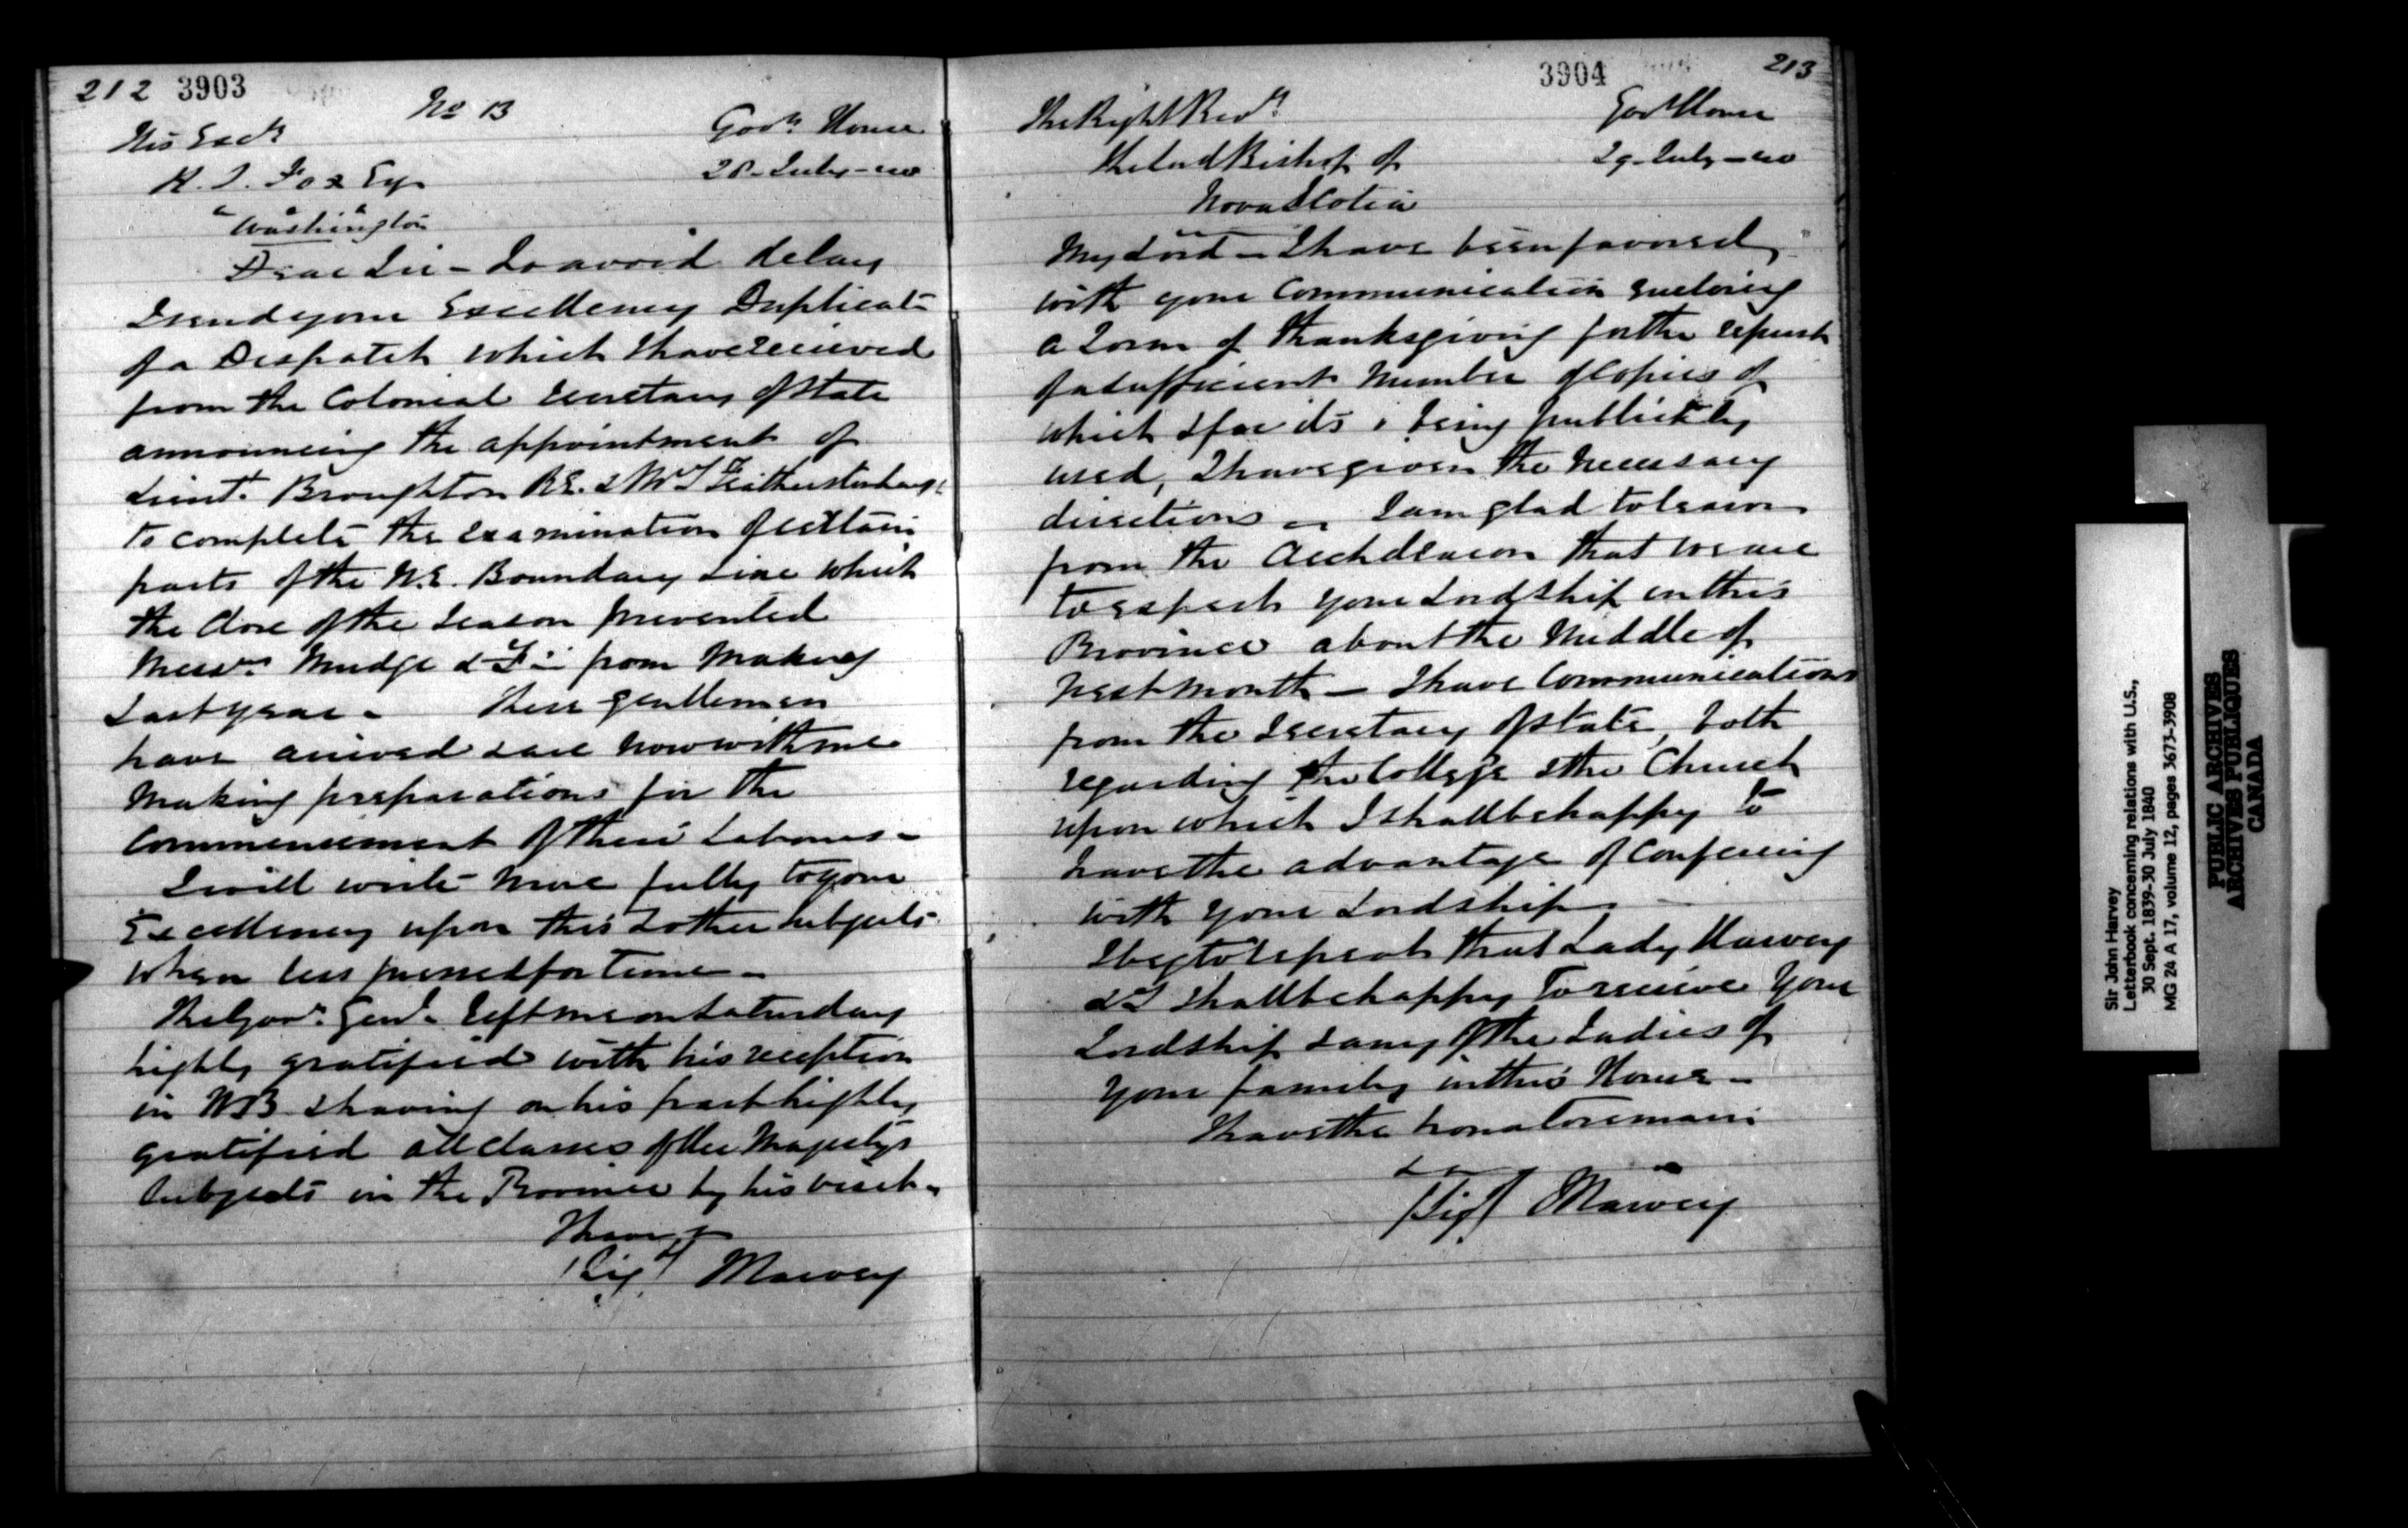 212 3903
No 13
His Excy
H. S. Fox Esq
Washington
Govt House
28 - July - 40
Dear Sir - To avoid delay
I send your Excellency Duplicate
of a Despatch which I have recieved
from the Colonial Secretary of State
announcing the appointment of
Lieut. Broughton R.E. & Mr J Featherstonhaugh
to complete the examination of certain
parts of the N.E. Boundary Line which
the close of the Season prevented
Messrs Mudge & F from making
Last year - These gentlemen
have arrived & are now with me
making preparations for the
commencement of their Labours -
I will write more fully to your
Excellency upon this & other subjects
when less pressed for time -
The Govr. Genl. left me on Saturday
highly gratified with his reception
in NB & having on his part highly
gratified all classes of Her Majesty's
Subjects in the Province by his visit -
I have &
(Sigd) J Harvey
3904 213
The Right Revd
The Lord Bishop of
Nova Scotia
Govt House
29 - July - 40
My Lord - I have been favored
with your Communication enclosing
a Form of Thanksgiving for the reprint
of a sufficient Number of Copies of
which & for its being publickly
used, I have given the necessary
directions - I am glad to learn
from the Archdeacon that we are
to expect your Lordship in this
Province about the Middle of
next month - I have Communications
from the Secretary of State, both
regarding the College & the Church
upon which I shall be happy to
have the advantage of Conferring
with your Lordship -
I beg to repeat that Lady Harvey
& I shall be happy to receive your
Lordship & any of the Ladies of
your family in this House -
I have the honor to remain
&c
(Sigd) J Harvey
Sir John Harvey
Letterbook concerning relations with U.S.,
30 Sept. 1839-30 July 1840
MG 24 A 17, volume 12, pages 3673-3908
PUBLIC ARCHIVES
ARCHIVES PUBLIQUES
CANADA